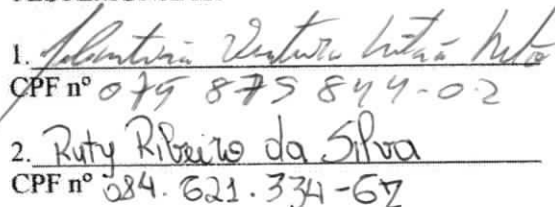 1. Ventura Neto
CPF nº 079 875 844-02
2. Ruty Ribeiro da Silva
CPF nº 084.621.334-67